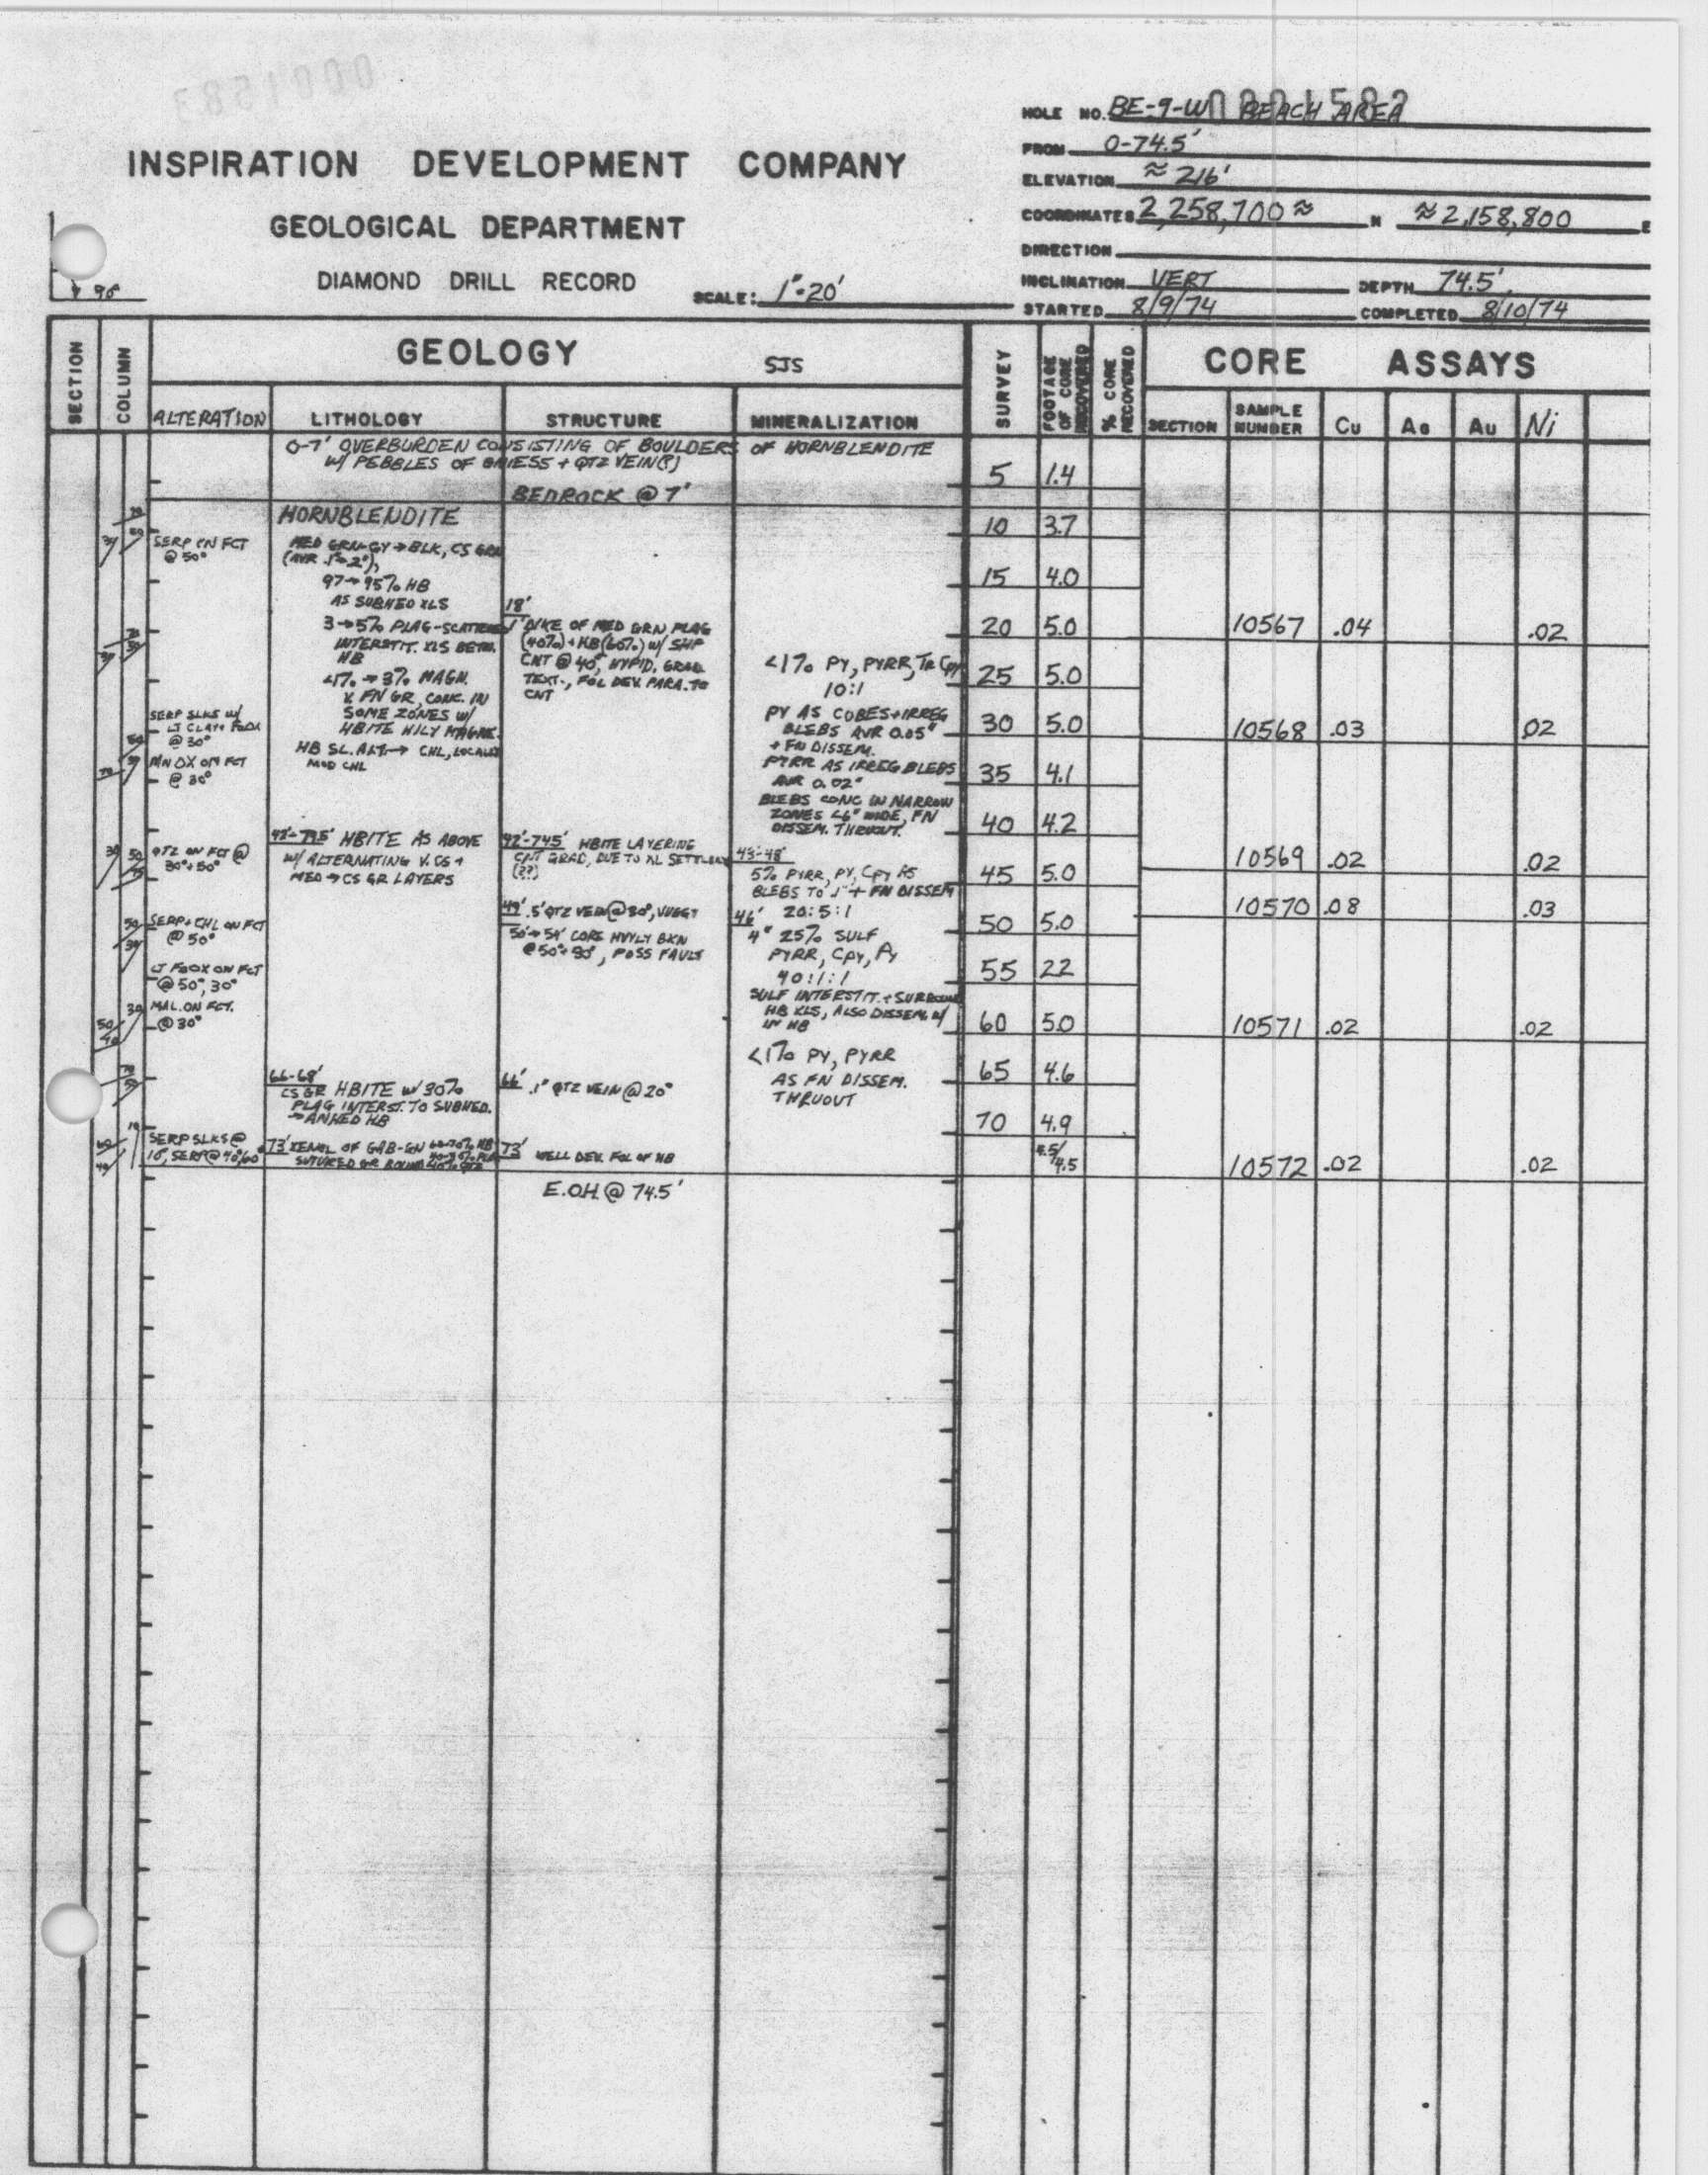 0001583
HOLE NO. BE-9-W BEACH AREA
0001582
FROM 0-74.5'
ELEVATION ≈ 216'
COORDINATES 2,258,700 ≈ N ≈ 2,158,800 E
DIRECTION
INCLINATION VERT DEPTH 74.5'
STARTED 8/9/74 COMPLETED 8/10/74
INSPIRATION DEVELOPMENT COMPANY
GEOLOGICAL DEPARTMENT
DIAMOND DRILL RECORD SCALE: 1"=20'
SECTION
COLUMN
GEOLOGY SJS
ALTERATION LITHOLOGY STRUCTURE MINERALIZATION
SURVEY
FOOTAGE OF CORE RECOVERED
% CORE RECOVERED
CORE ASSAYS
SECTION SAMPLE NUMBER Cu Ag Au Ni
0-7' OVERBURDEN CONSISTING OF BOULDERS OF HORNBLENDITE
W/ PEBBLES OF GNIESS + QTZ VEIN(?)
BEDROCK @ 7'
SERP ON FCT
@ 50°
SERP SLKS W/
LT CLAY+ FEOX
@ 30°
MN OX ON FCT
@ 30°
QTZ ON FCT @
30°+50°
SERP+CHL ON FCT
@ 50°
LT FEOX ON FCT
@ 50°, 30°
MAL. ON FCT.
@ 30°
SERP SLKS @
10°, SERP @ 40°,60°
HORNBLENDITE
MED GRN-GY → BLK, CS GRN
(AVR .1"-.2"),
97→95% HB
AS SUBHED XLS
3→5% PLAG-SCATTERED
INTERSTIT. XLS BETW.
HB
<1% → 3% MAGN.
V. FN GR, CONC. IN
SOME ZONES W/
HBITE HILY MAGNE.
HB SL. ALT. → CHL, LOCALLY
MOD CHL
42'-74.5' HBITE AS ABOVE
W/ ALTERNATING V. CS +
MED → CS GR LAYERS
66-68'
CS GR HBITE W/ 30%
PLAG INTERST. TO SUBHED.
→ ANHED HB
73' XENOL OF GAB-GN
SUTURED GR BOUND
18'
1' DIKE OF MED GRN PLAG
(40%) + HB (60%) W/ SHP
CNT @ 40°, HYPID. GRAN
TEXT., FOL DEV. PARA. TO
CNT
42'-74.5' HBITE LAYERING
CNT GRAD, DUE TO XL SETTLING
(??)
49' .5' QTZ VEIN @ 30°, VUGGY
50'→54' CORE HVYLY BKN
@ 50°+90°, POSS FAULT
66' .1" QTZ VEIN @ 20°
73' WELL DEV. FOL OF HB
E.O.H. @ 74.5'
<1% PY, PYRR, TR CPY
10:1
PY AS CUBES+IRREG
BLEBS AVR 0.05"
+ FN DISSEM.
PYRR AS IRREG BLEBS
AVR 0.02"
BLEBS CONC IN NARROW
ZONES <6" WIDE, FN
DISSEM. THRUOUT.
43-48'
5% PYRR, PY, CPY AS
BLEBS TO .1" + FN DISSEM
20:5:1
46'
4" 25% SULF
PYRR, CPY, PY
40:1:1
SULF INTERSTIT. + SURROUND
HB XLS, ALSO DISSEM. W/
IN HB
<1% PY, PYRR
AS FN DISSEM.
THRUOUT
5 1.4
10 3.7
15 4.0
20 5.0 10567 .04 .02
25 5.0
30 5.0 10568 .03 .02
35 4.1
40 4.2
10569 .02 .02
45 5.0
10570 .08 .03
50 5.0
55 2.2
60 5.0 10571 .02 .02
65 4.6
70 4.9
4.5/4.5 10572 .02 .02